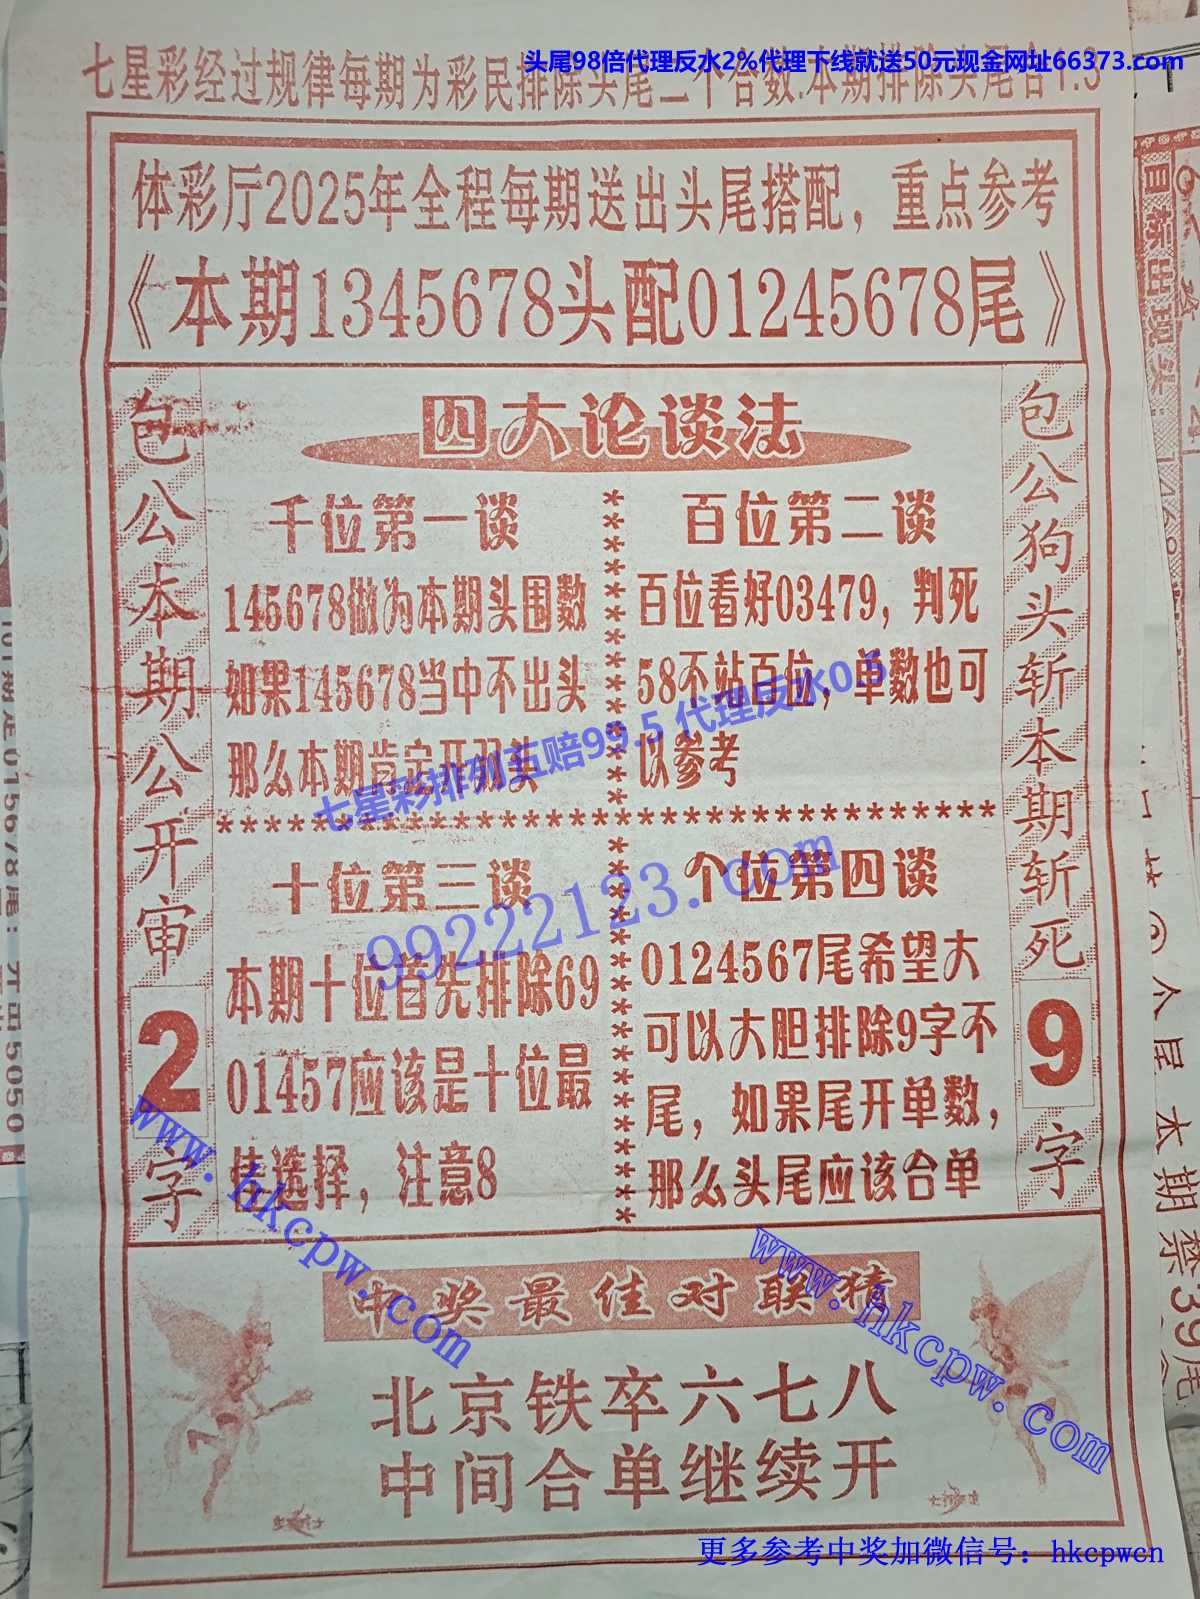 头尾98倍代理反水2%代理下线就送50元现金网址66373.com
七星彩经过规律每期为彩民排除头尾二个合数.本期排除头尾合1.3
体彩厅2025年全程每期送出头尾搭配，重点参考
《本期1345678头配01245678尾》
包公本期公开审2字
四大论谈法
千位第一谈
145678做为本期头围数
如果145678当中不出头
那么本期肯定开双头
百位第二谈
百位看好03479，判死
58不站百位，单数也可
以参考
七星彩排列五赔99.5 代理反水0.5
十位第三谈
本期十位首先排除69
01457应该是十位最
佳选择，注意8
个位第四谈
0124567尾希望大
可以大胆排除9字不
尾，如果尾开单数，
那么头尾应该合单
99222123.com
包公狗头斩本期斩死9字
www.hkcpw.com
www.hkcpw.com
中奖最佳对联猜
北京铁卒六七八
中间合单继续开
更多参考中奖加微信号：hkcpwcn
目标出现头:
本期禁39尾